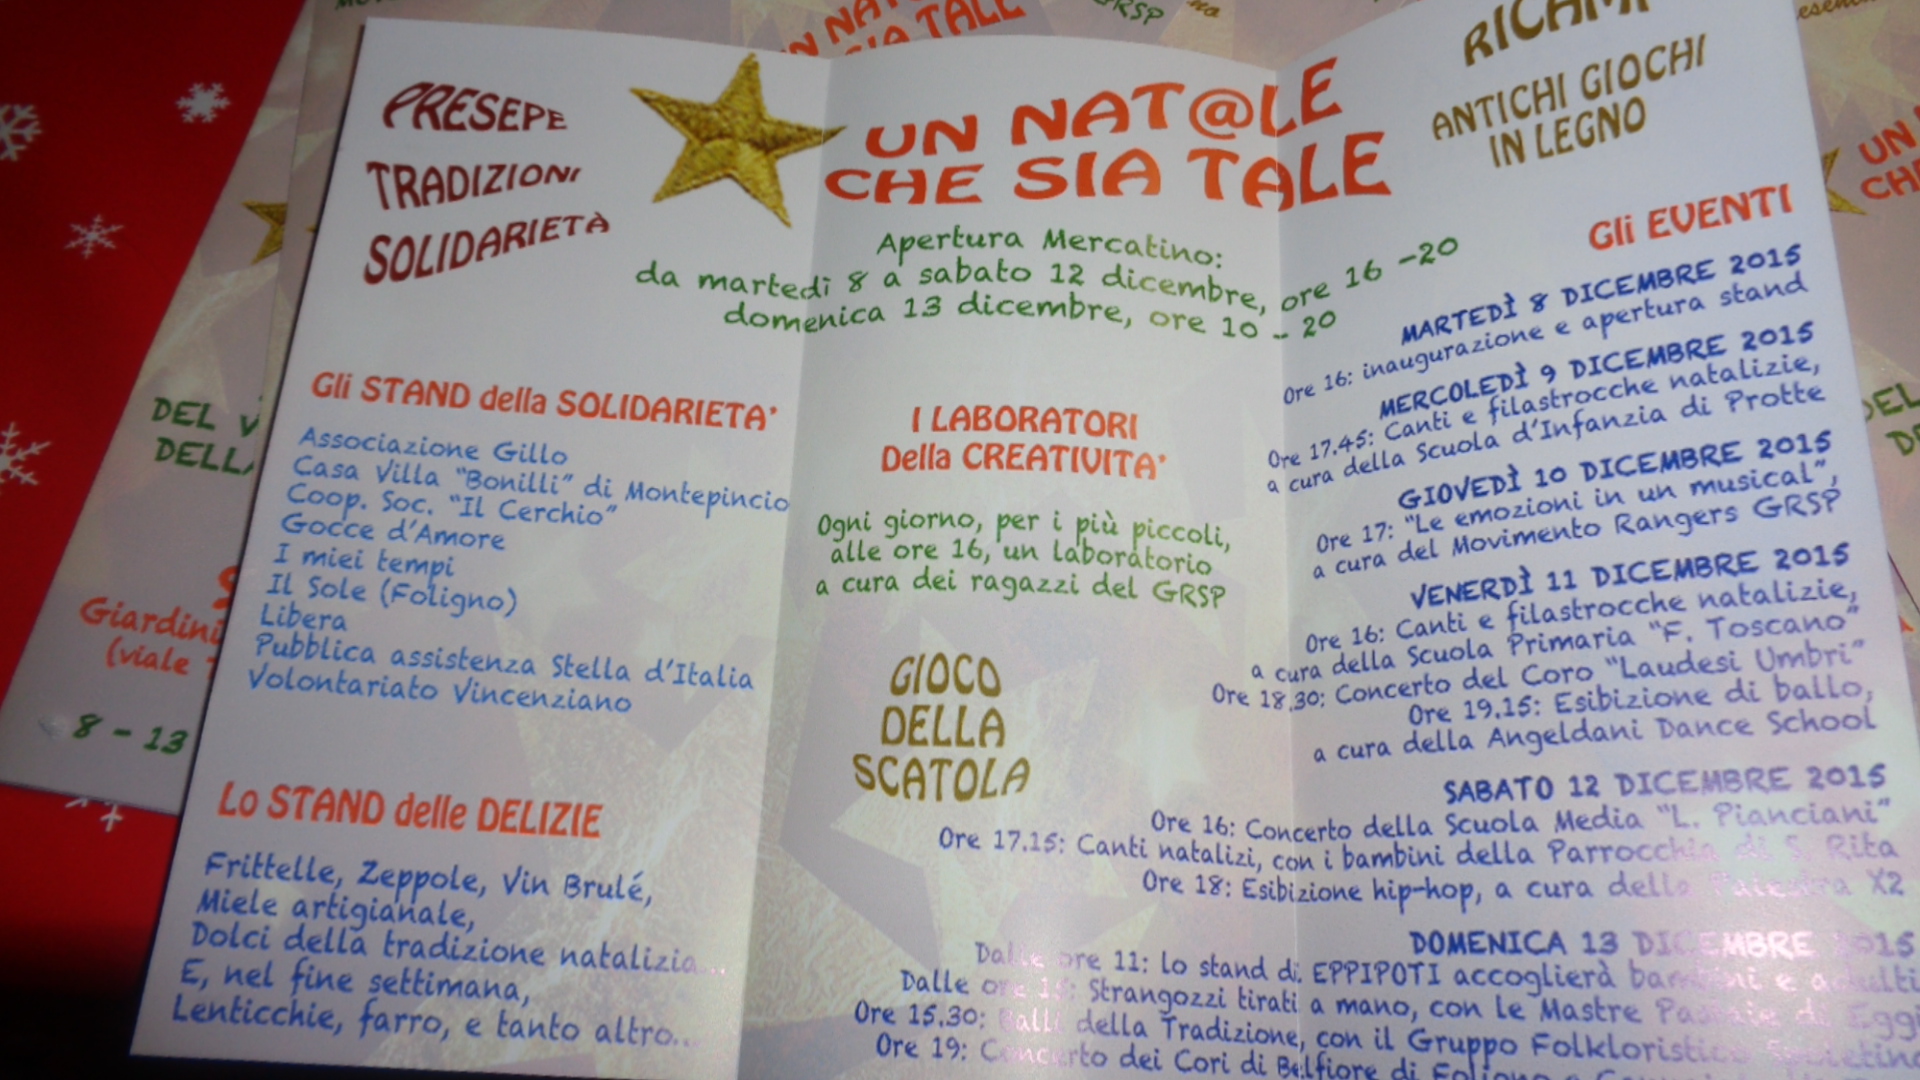 PRESEPE
TRADIZIONI
SOLIDARIETÀ
UN NAT@LE
CHE SIA TALE
Apertura Mercatino:
da martedì 8 a sabato 12 dicembre, ore 16 -20
domenica 13 dicembre, ore 10 - 20
Gli STAND della SOLIDARIETA'
Associazione Gillo
Casa Villa "Bonilli" di Montepincio
Coop. Soc. "Il Cerchio"
Gocce d'Amore
I miei tempi
Il Sole (Foligno)
Libera
Pubblica assistenza Stella d'Italia
Volontariato Vincenziano
Lo STAND delle DELIZIE
Frittelle, Zeppole, Vin Brulé,
Miele artigianale,
Dolci della tradizione natalizia...
E, nel fine settimana,
Lenticchie, farro, e tanto altro...
I LABORATORI
Della CREATIVITA'
Ogni giorno, per i più piccoli,
alle ore 16, un laboratorio
a cura dei ragazzi del GRSP
GIOCO
DELLA
SCATOLA
RICAMI
ANTICHI GIOCHI
IN LEGNO
Gli EVENTI
MARTEDÌ 8 DICEMBRE 2015
Ore 16: inaugurazione e apertura stand
MERCOLEDÌ 9 DICEMBRE 2015
Ore 17.45: Canti e filastrocche natalizie,
a cura della Scuola d'Infanzia di Protte
GIOVEDÌ 10 DICEMBRE 2015
Ore 17: "Le emozioni in un musical",
a cura del Movimento Rangers GRSP
VENERDÌ 11 DICEMBRE 2015
Ore 16: Canti e filastrocche natalizie,
a cura della Scuola Primaria "F. Toscano"
Ore 18.30: Concerto del Coro "Laudesi Umbri"
Ore 19.15: Esibizione di ballo,
a cura della Angeldani Dance School
SABATO 12 DICEMBRE 2015
Ore 16: Concerto della Scuola Media "L. Pianciani"
Ore 17.15: Canti natalizi, con i bambini della Parrocchia di S. Rita
Ore 18: Esibizione hip-hop, a cura della Palestra X2
DOMENICA 13 DICEMBRE 2015
Dalle ore 11: lo stand di EPPIPOTI accoglierà bambini e adulti
Dalle ore 15: Strangozzi tirati a mano, con le Mastre Pastaie di Eggi
Ore 15.30: Balli della Tradizione, con il Gruppo Folkloristico
Ore 19: Concerto dei Cori di Belfiore di Foligno e
UN
SIA TALE
GRSP
DEL
DELLA
Giardini
(viale
8 - 13